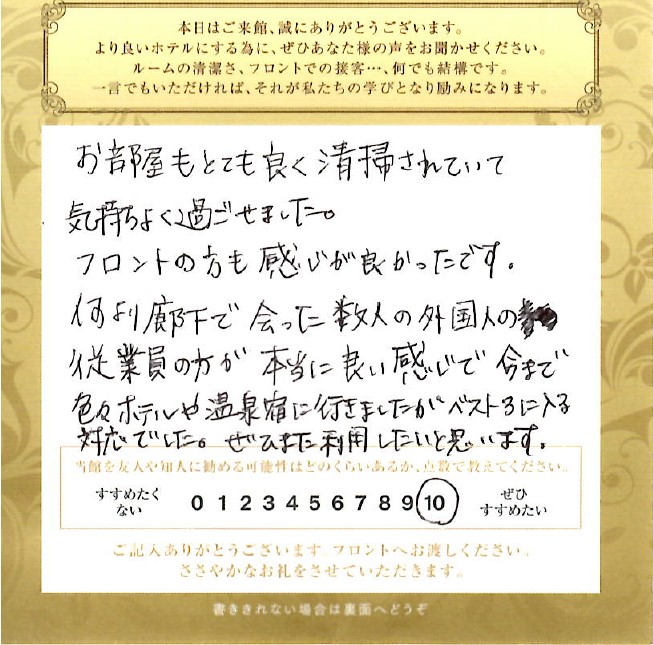 本日はご来館、誠にありがとうございます。
より良いホテルにする為に、ぜひあなた様の声をお聞かせください。
ルームの清潔さ、フロントでの接客…、何でも結構です。
一言でもいただければ、それが私たちの学びとなり励みになります。
お部屋もとても良く清掃されていて
気持ちよく過ごせました。
フロントの方も感じが良かったです。
何より廊下で会った数人の外国人の
従業員の方が本当に良い感じで今まで
色々ホテルや温泉宿に行きましたがベスト3に入る
対応でした。ぜひまた利用したいと思います。
当館を友人や知人に勧める可能性はどのくらいあるか、点数で教えてください。
すすめたくない 0 1 2 3 4 5 6 7 8 9 10 ぜひすすめたい
ご記入ありがとうございます。フロントへお渡しください。
ささやかなお礼をさせていただきます。
書ききれない場合は裏面へどうぞ